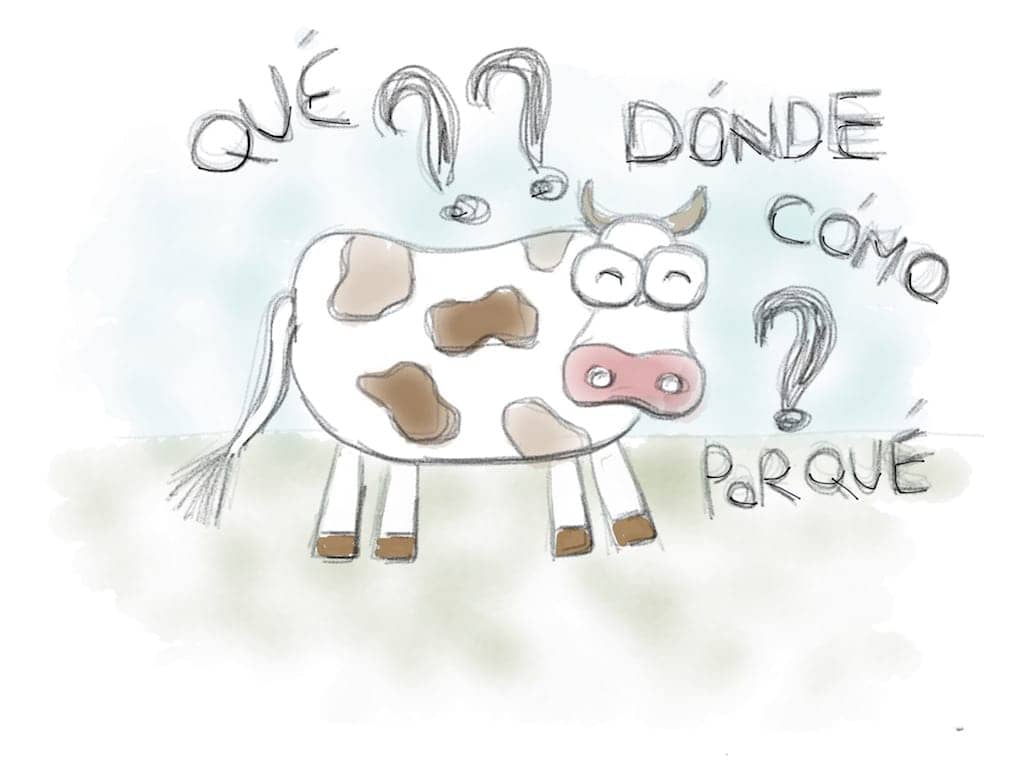 QUÉ ??
DÓNDE
CÓMO
?
POR QUÉ